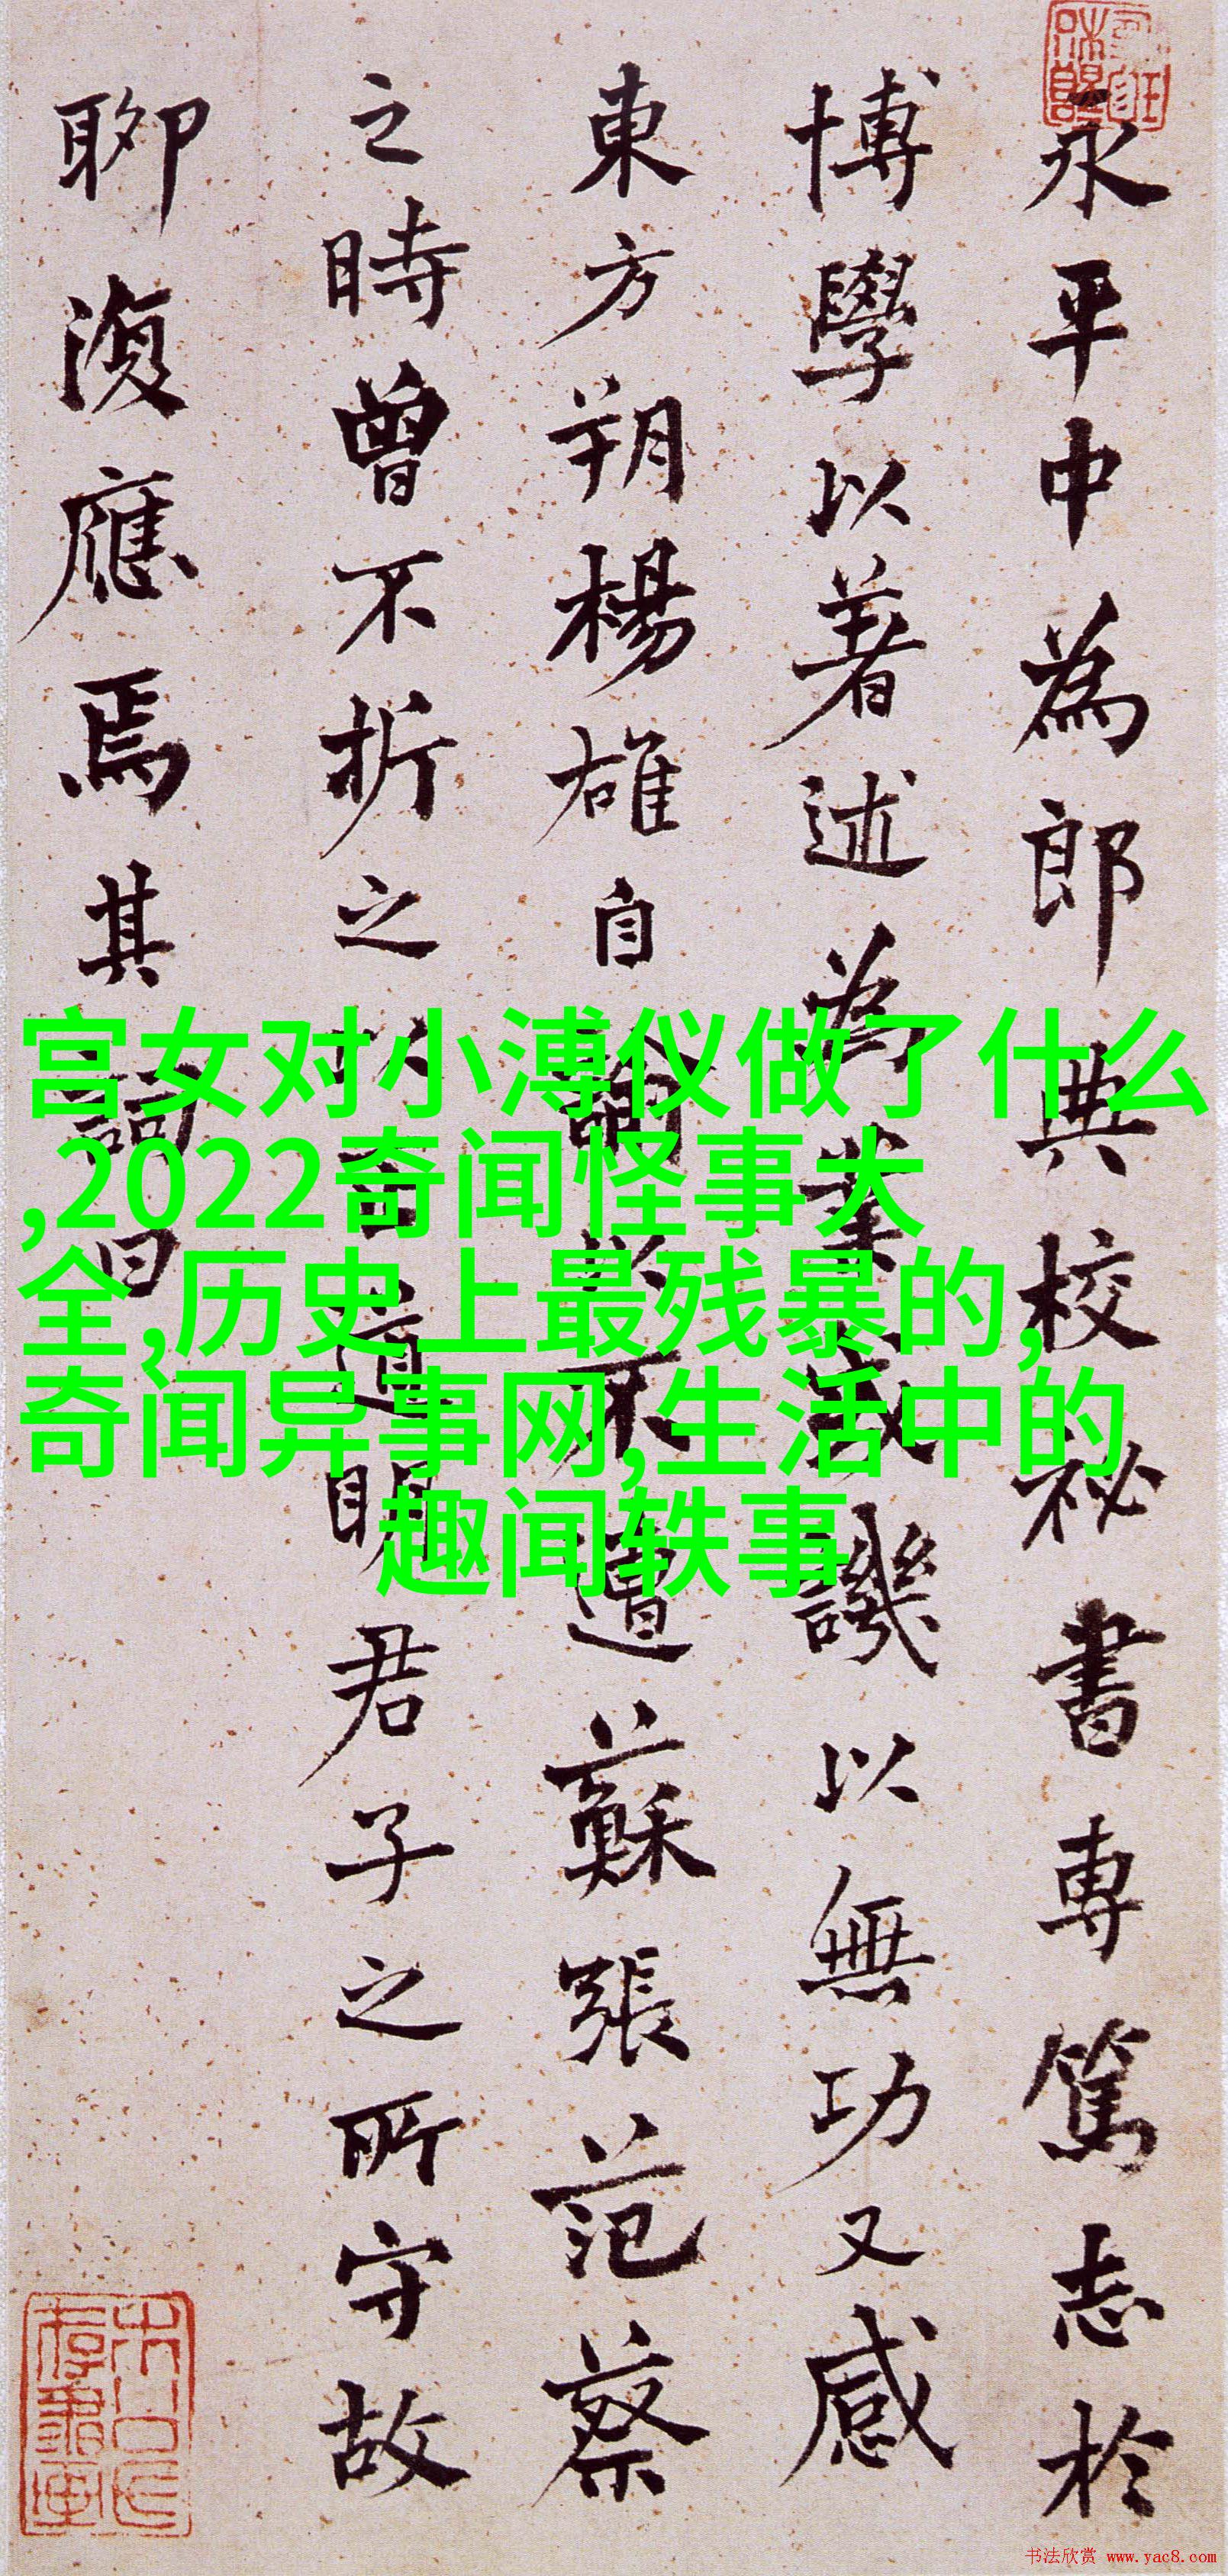 永平中為郎典校祕書專篤志於
博學以著述為業或譏以無功又感
東方朔楊雄自諭以不遭蘇張范蔡
之時曾不折之以正道明君子之所守故
聊復應焉其詞曰
宫女对小溥仪做了什么
,2022奇闻怪事大
全,历史上最残暴的,
奇闻异事网,生活中的
趣闻轶事
书法欣赏 www.yac8.com